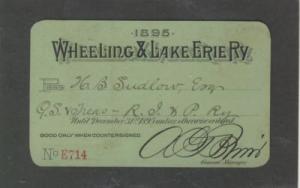 1895
WHEELING & LAKE ERIE RY.
Pass H. B. Sudlow, Esq
G. S. & Treas - R. I. & P. Ry
Until December 31st 1895 unless otherwise ordered.
GOOD ONLY WHEN COUNTERSIGNED
No E714
General Manager.